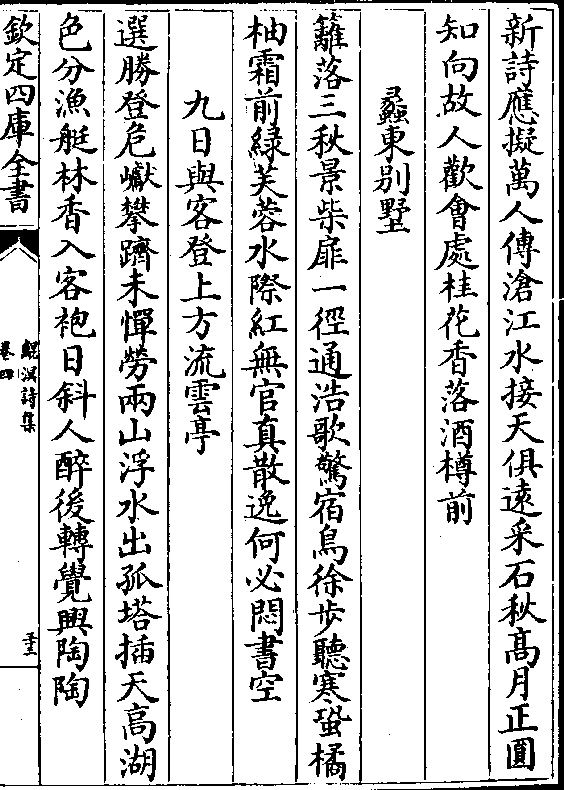 新詩應擬萬人傳滄江水接天俱遠采石秋髙月正圓
知向故人歡會處桂花香落酒樽前
蠡東别墅
籬落三秋景柴扉一徑通浩歌驚宿鳥徐步聽寒蛩橘
柚霜前緑芙蓉水際紅無官真散逸何必悶書空
九日與客登上方流雲亭
選勝登危巘攀躋未憚勞兩山浮水出孤塔插天高湖
色分漁艇林香入客袍日斜人醉後轉覺興陶陶
欽定四庫全書
鯤溟詩集
卷四